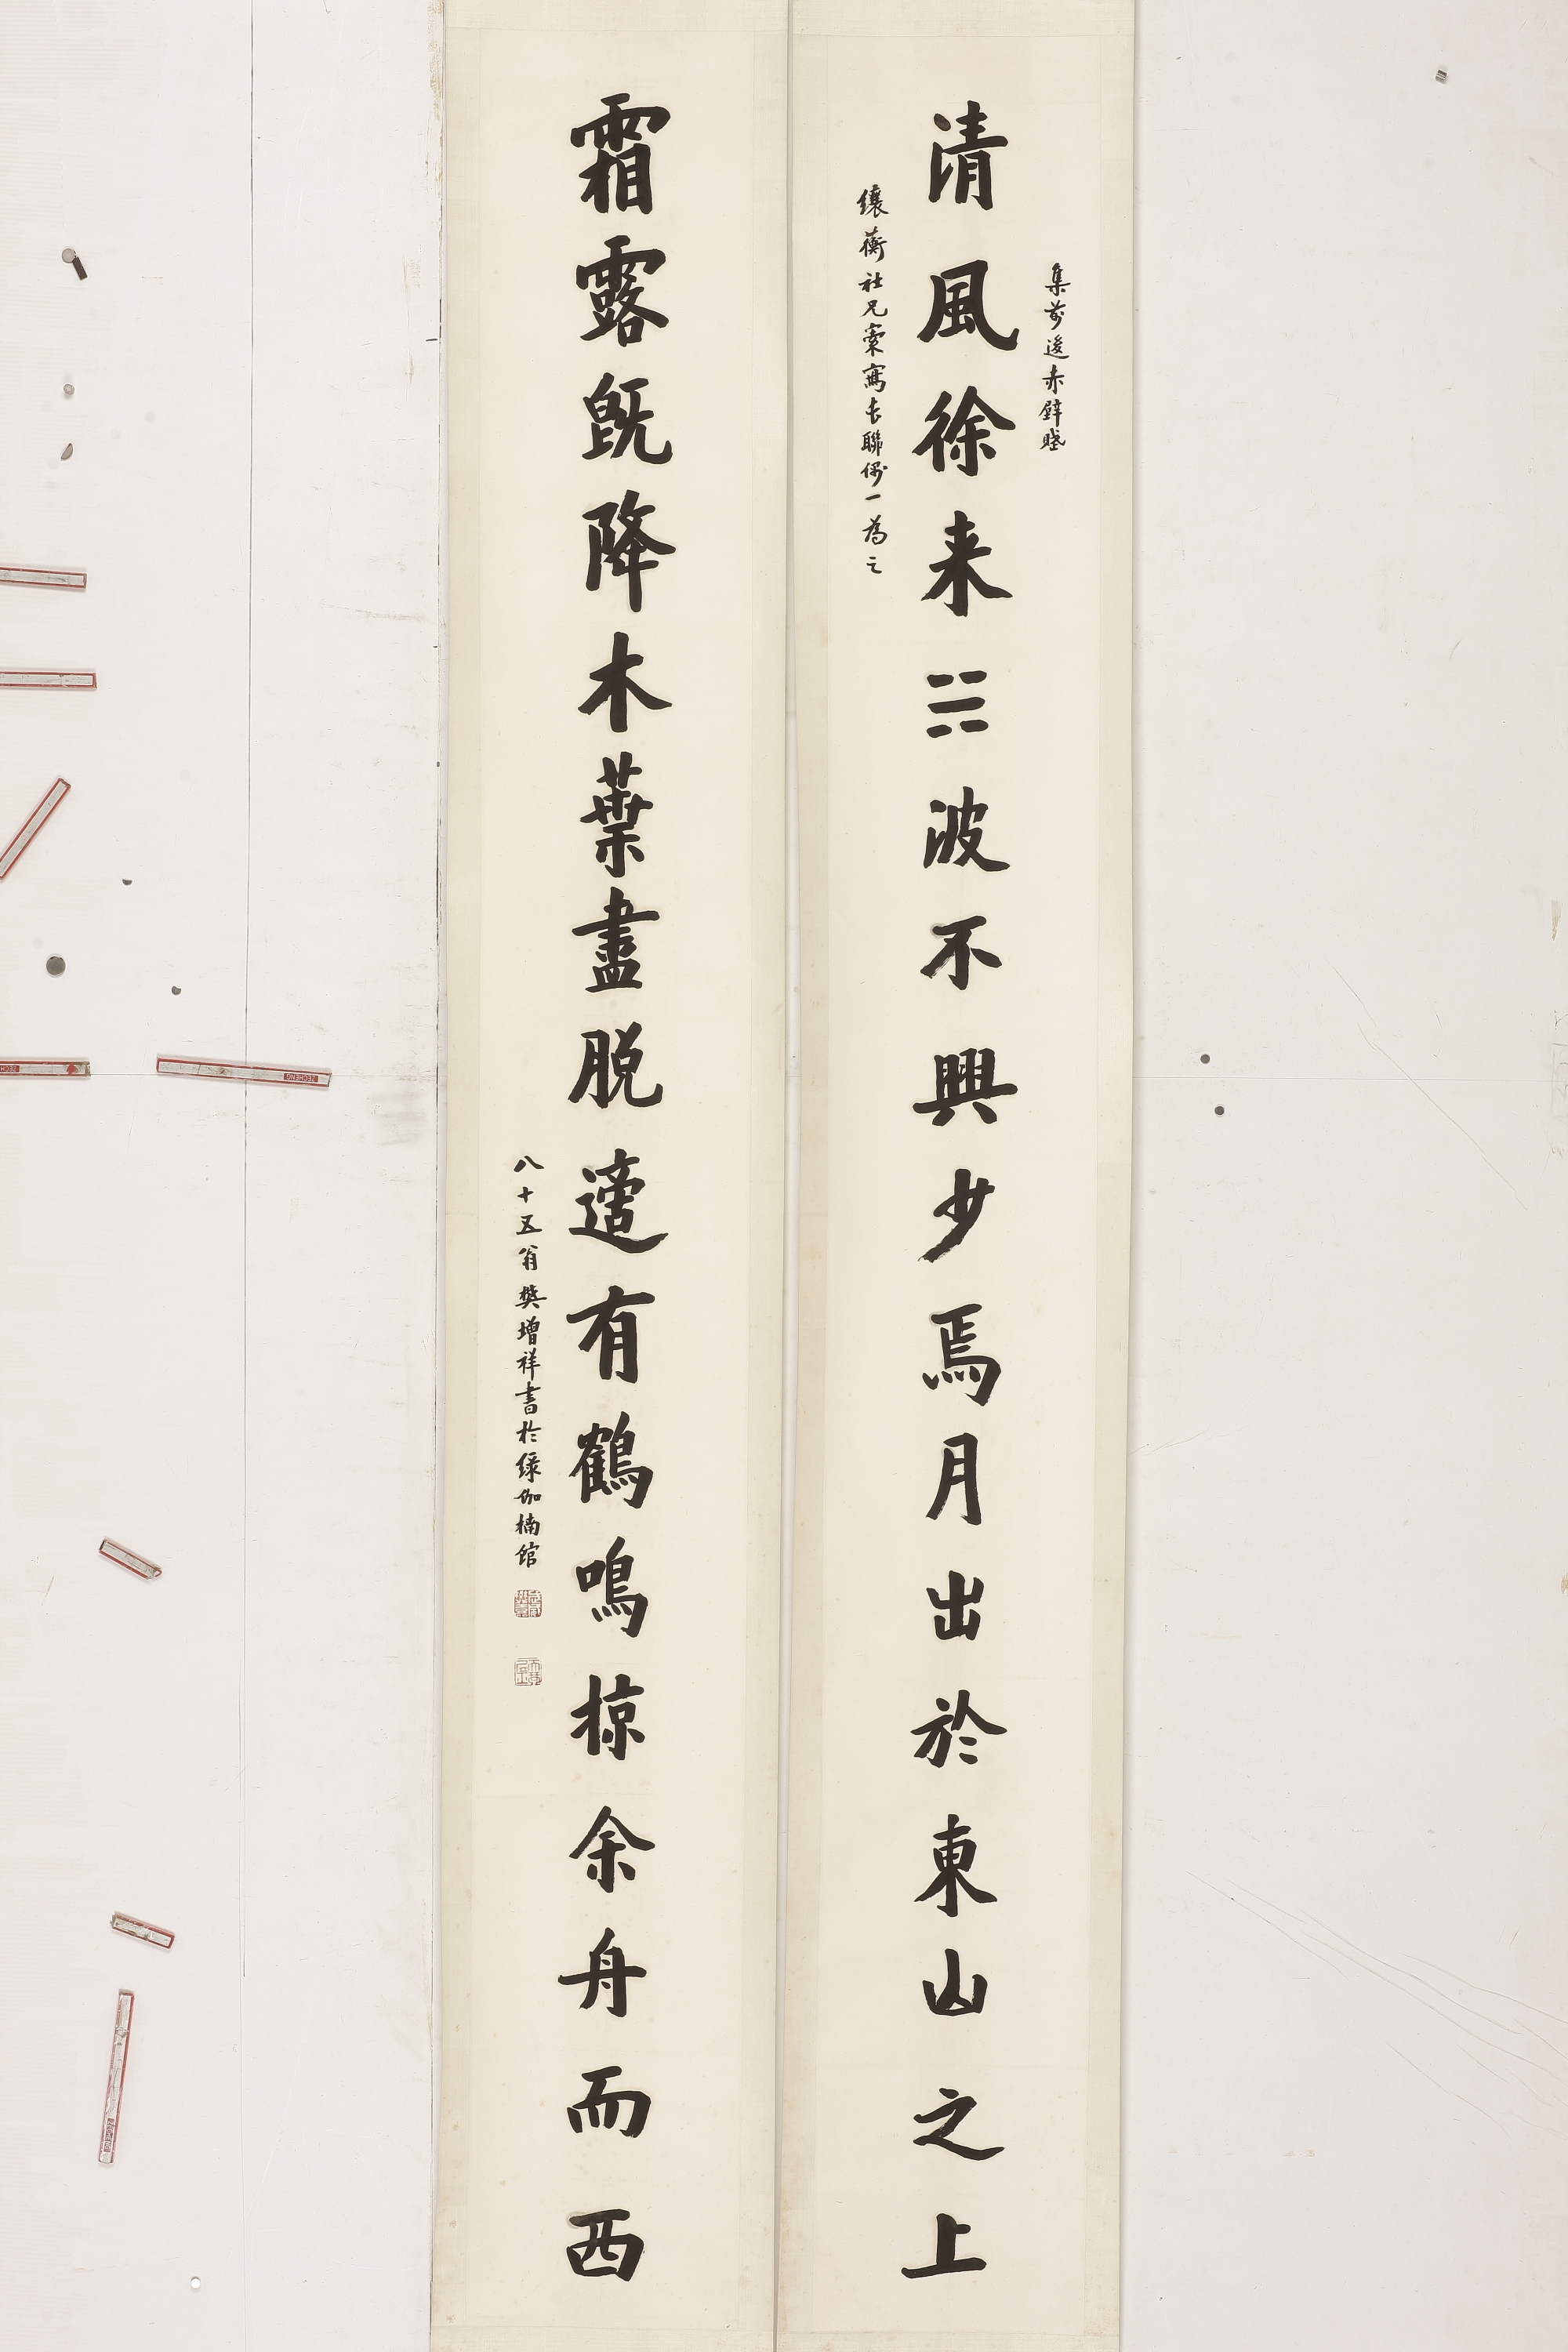 集前後赤壁賦
清風徐来☵波不興少焉月出於東山之上
纕蘅社兄索寫長聯偶一為之
霜露既降木葉盡脱適有鶴鳴掠余舟而西
八十五翁樊增祥書於緑伽楠館
ZECHENG